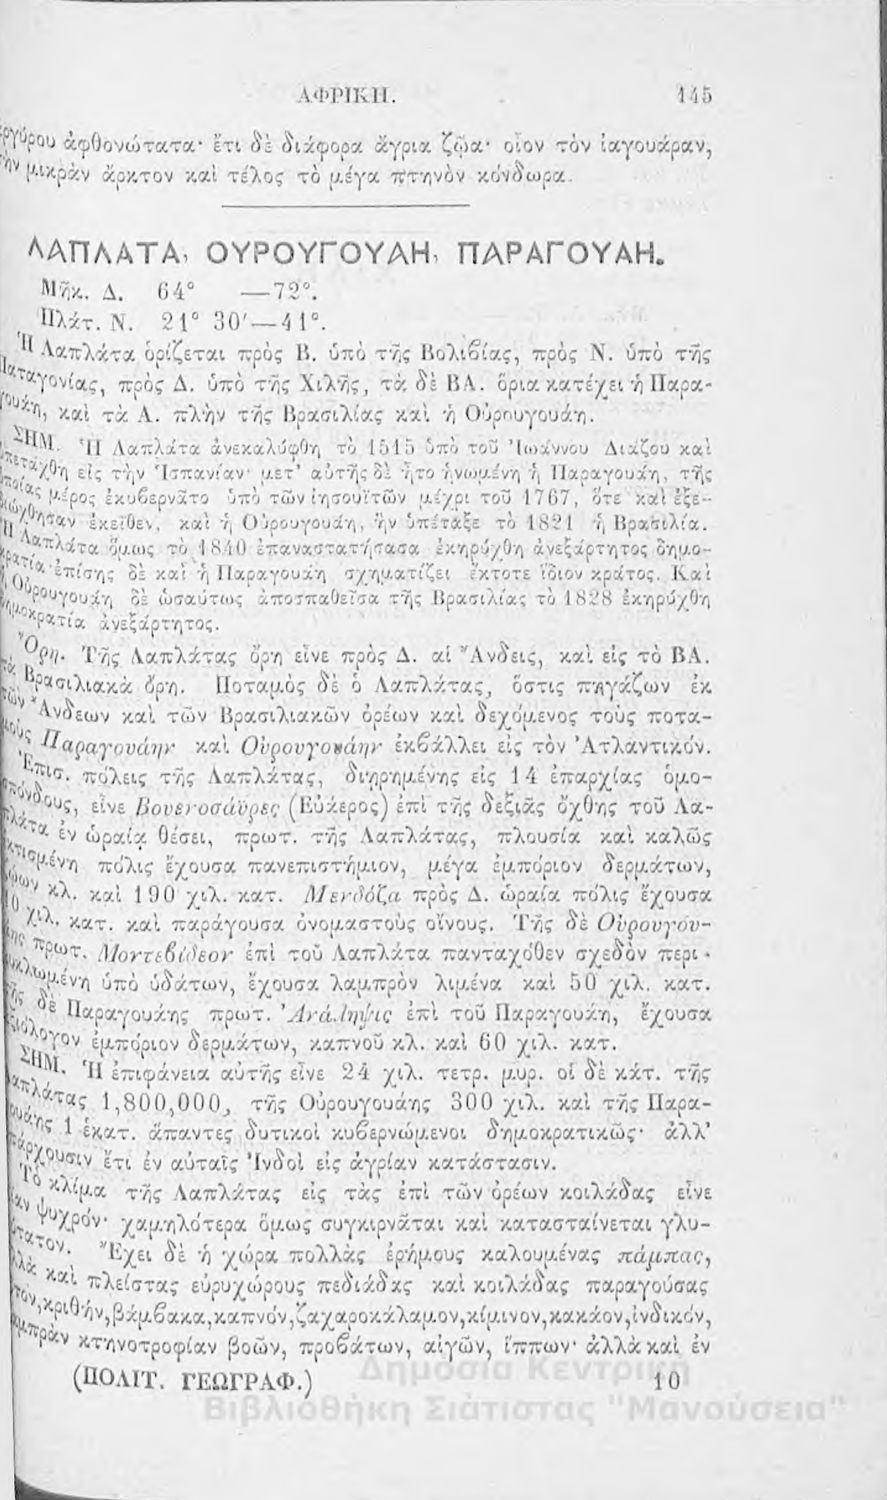 ΑΦΡΙΚΗ. 145
ἀφθονώτατα· ἔτι δὲ διάφορα ἄγρια ζῷα· οἷον τὸν ἰαγουάραν,
μικρὰν ἄρκτον καὶ τέλος τὸ μέγα πτηνὸν κόνδωρα.
ΛΑΠΛΑΤΑ, ΟΥΡΟΥΓΟΥΑΗ, ΠΑΡΑΓΟΥΑΗ.
Μῆκ. Δ. 64° —72°.
Πλάτ. Ν. 21° 30′—41°.
Ἡ Λαπλάτα ὁρίζεται πρὸς Β. ὑπὸ τῆς Βολιβίας, πρὸς Ν. ὑπὸ τῆς
Παταγονίας, πρὸς Δ. ὑπὸ τῆς Χιλῆς, τὰ δὲ ΒΑ. ὅρια κατέχει ἡ Παρα-
γουάη, καὶ τὰ Α. πλὴν τῆς Βρασιλίας καὶ ἡ Οὐρουγουάη.
ΣΗΜ. Ἡ Λαπλάτα ἀνεκαλύφθη τὸ 1515 ὑπὸ τοῦ Ἰωάννου Διάζου καὶ
ὑπετάχθη εἰς τὴν Ἱσπανίαν· μετ’ αὐτῆς δὲ ἦτο ἡνωμένη ἡ Παραγουάη, τῆς
ὁποίας μέρος ἐκυβερνᾶτο ὑπὸ τῶν ἰησουϊτῶν μέχρι τοῦ 1767, ὅτε καὶ ἐξε-
διώχθησαν ἐκεῖθεν, καὶ ἡ Οὐρουγουάη, ἣν ὑπέταξε τὸ 1821 ἡ Βρασιλία.
Ἡ Λαπλάτα ὅμως τὸ 1840 ἐπαναστατήσασα ἐκηρύχθη ἀνεξάρτητος δημο-
κρατία ἐπίσης δὲ καὶ ἡ Παραγουάη σχηματίζει ἔκτοτε ἴδιον κράτος. Καὶ
ἡ Οὐρουγουάη δὲ ὡσαύτως ἀποσπαθεῖσα τῆς Βρασιλίας τὸ 1828 ἐκηρύχθη
δημοκρατία ἀνεξάρτητος.
Ὄρη. Τῆς Λαπλάτας ὄρη εἶνε πρὸς Δ. αἱ Ἄνδεις, καὶ εἰς τὸ ΒΑ.
τὰ Βρασιλιακὰ ὄρη. Ποταμὸς δὲ ὁ Λαπλάτας, ὅστις πηγάζων ἐκ
τῶν Ἄνδεων καὶ τῶν Βρασιλιακῶν ὀρέων καὶ δεχόμενος τοὺς ποτα-
μοὺς Παραγουάην καὶ Οὐρουγουάην ἐκβάλλει εἰς τὸν Ἀτλαντικόν.
Ἐπισ. πόλεις τῆς Λαπλάτας, διῃρημένης εἰς 14 ἐπαρχίας ὁμο-
σπόνδους, εἶνε Βουενοσάϋρες (Εὐάερος) ἐπὶ τῆς δεξιᾶς ὄχθης τοῦ Λα-
πλάτα ἐν ὡραίᾳ θέσει, πρωτ. τῆς Λαπλάτας, πλουσία καὶ καλῶς
κτισμένη πόλις ἔχουσα πανεπιστήμιον, μέγα ἐμπόριον δερμάτων,
κλ. καὶ 190 χιλ. κατ. Μενδόζα πρὸς Δ. ὡραία πόλις ἔχουσα
10 χιλ. κατ. καὶ παράγουσα ὀνομαστοὺς οἴνους. Τῆς δὲ Οὐρουγου-
άης πρωτ. Μοντεβίδεον ἐπὶ τοῦ Λαπλάτα πανταχόθεν σχεδὸν περι-
κυκλωμένη ὑπὸ ὑδάτων, ἔχουσα λαμπρὸν λιμένα καὶ 50 χιλ. κατ.
τῆς δὲ Παραγουάης πρωτ. Ἀνάληψις ἐπὶ τοῦ Παραγουάη, ἔχουσα
ἀξιόλογον ἐμπόριον δερμάτων, καπνοῦ κλ. καὶ 60 χιλ. κατ.
ΣΗΜ. Ἡ ἐπιφάνεια αὐτῆς εἶνε 24 χιλ. τετρ. μυρ. οἱ δὲ κάτ. τῆς
Λαπλάτας 1,800,000, τῆς Οὐρουγουάης 300 χιλ. καὶ τῆς Παρα-
γουάης 1 ἑκατ. ἅπαντες δυτικοὶ κυβερνώμενοι δημοκρατικῶς· ἀλλ’
ὑπάρχουσιν ἔτι ἐν αὐταῖς Ἰνδοὶ εἰς ἀγρίαν κατάστασιν.
Τὸ κλίμα τῆς Λαπλάτας εἰς τὰς ἐπὶ τῶν ὀρέων κοιλάδας εἶνε
λίαν ψυχρόν· χαμηλότερα ὅμως συγκιρνᾶται καὶ κατασταίνεται γλυ-
κύτατον. Ἔχει δὲ ἡ χώρα πολλὰς ἐρήμους καλουμένας πάμπας,
ἀλλὰ καὶ πλείστας εὐρυχώρους πεδιάδας καὶ κοιλάδας παραγούσας
κριθήν, βάμβακα, καπνόν, ζαχαροκάλαμον, κίμινον, κακάον, ἰνδικόν,
λαμπρὰν κτηνοτροφίαν βοῶν, προβάτων, αἰγῶν, ἵππων· ἀλλὰ καὶ ἐν
(ΠΟΛΙΤ. ΓΕΩΓΡΑΦ.) 10
Δημόσια Κεντρική
Βιβλιοθήκη Σιάτιστας "Μανούσεια"